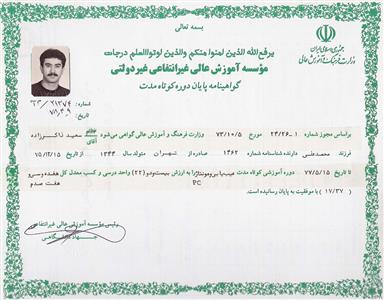 بسمه تعالی
جمهوری اسلامی ایران
وزارت فرهنگ و آموزش عالی
یرفع‌الله الذین امنوا منکم والذین اوتواالعلم درجات
مؤسسه آموزش عالی غیرانتفاعی غیردولتی
گواهینامه پایان دوره کوتاه مدت
شماره:
تاریخ:
براساس مجوز شماره ۲۴/۲۶-۱ مورخ ۷۳/۱۰/۵ وزارت فرهنگ و آموزش عالی گواهی می‌شود آقای سعید ذاکرزاده
فرزند محمدعلی دارنده شناسنامه شماره ۱۴۶۲ صادره از تهران متولد سال ۱۳۴۴ از تاریخ ۷۵/۱۲/۱۵
تا تاریخ ۷۷/۵/۱۵ دوره آموزشی کوتاه مدت به ارزش بیست‌ودو (۲۲) واحد درسی و کسب معدل کل هفده وسی‌و
هفت صدم PC
(۱۷/۳۷) با موفقیت به پایان رسانیده است.
رئیس مؤسسه آموزش عالی غیرانتفاعی
جهاد دانشگاهی